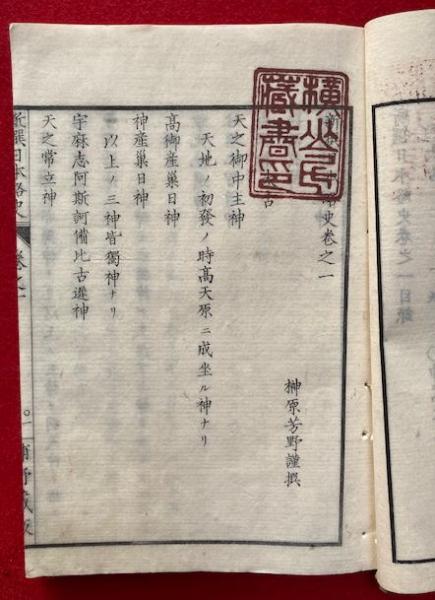 史卷之一
榊原芳野謹撰
天之御中主神
天地ノ初發ノ時高天原ニ成坐ル神ナリ
高御産巢日神
神産巢日神
以上ノ三神皆獨神ナリ
宇麻志阿斯訶備比古遲神
天之常立神
撰日本略史
卷之一
横山氏
藏書印